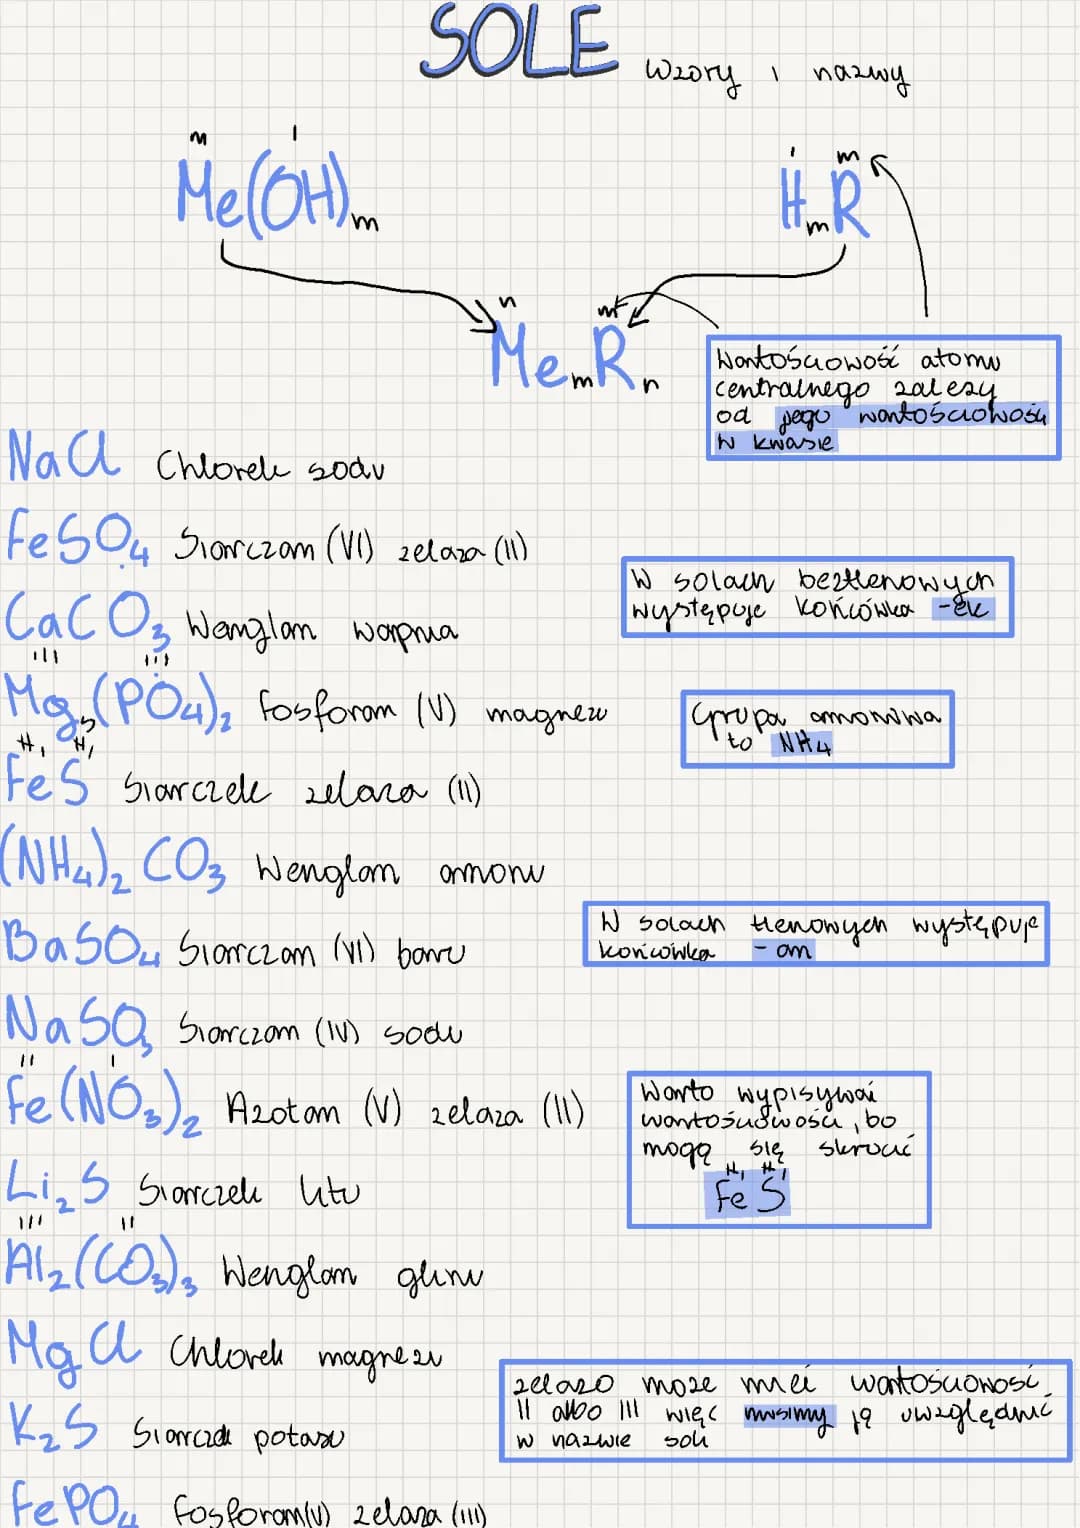 SOLE wzory i nazwy
m I
Me(OH)m
I m
HmR
n m
MemRn
Wartościowość atomu
centralnego zależy
od jego wartościowości
w kwasie
NaCl Chlorek sodu
FeSO4 Siarczan (VI) żelaza (II)
W solach beztlenowych
występuje końcówka -ek
CaCO3 Wenglan wapnia
III III
Mg3(PO4)2 fosforan (V) magnezu
Grupa amonowa
to NH4
II, II,
FeS Siarczek żelaza (II)
(NH4)2 CO3 Wenglan amonu
W solach tlenowych występuje
końcówka -an
BaSO4 Siarczan (VI) baru
NaSO3 Siarczan (IV) sodu
II I
Fe(NO3)2 Azotan (V) żelaza (II)
Warto wypisywać
wartościowości, bo
mogą się skrócić
II, II,
Fe S
Li2S Siarczek litu
III II
Al2(CO3)3 Wenglan glinu
MgCl Chlorek magnezu
żelazo może mieć wartościowość
II albo III więc musimy ją uwzględnić
w nazwie soli
K2S Siarczek potasu
FePO4 fosforan(V) żelaza (III)